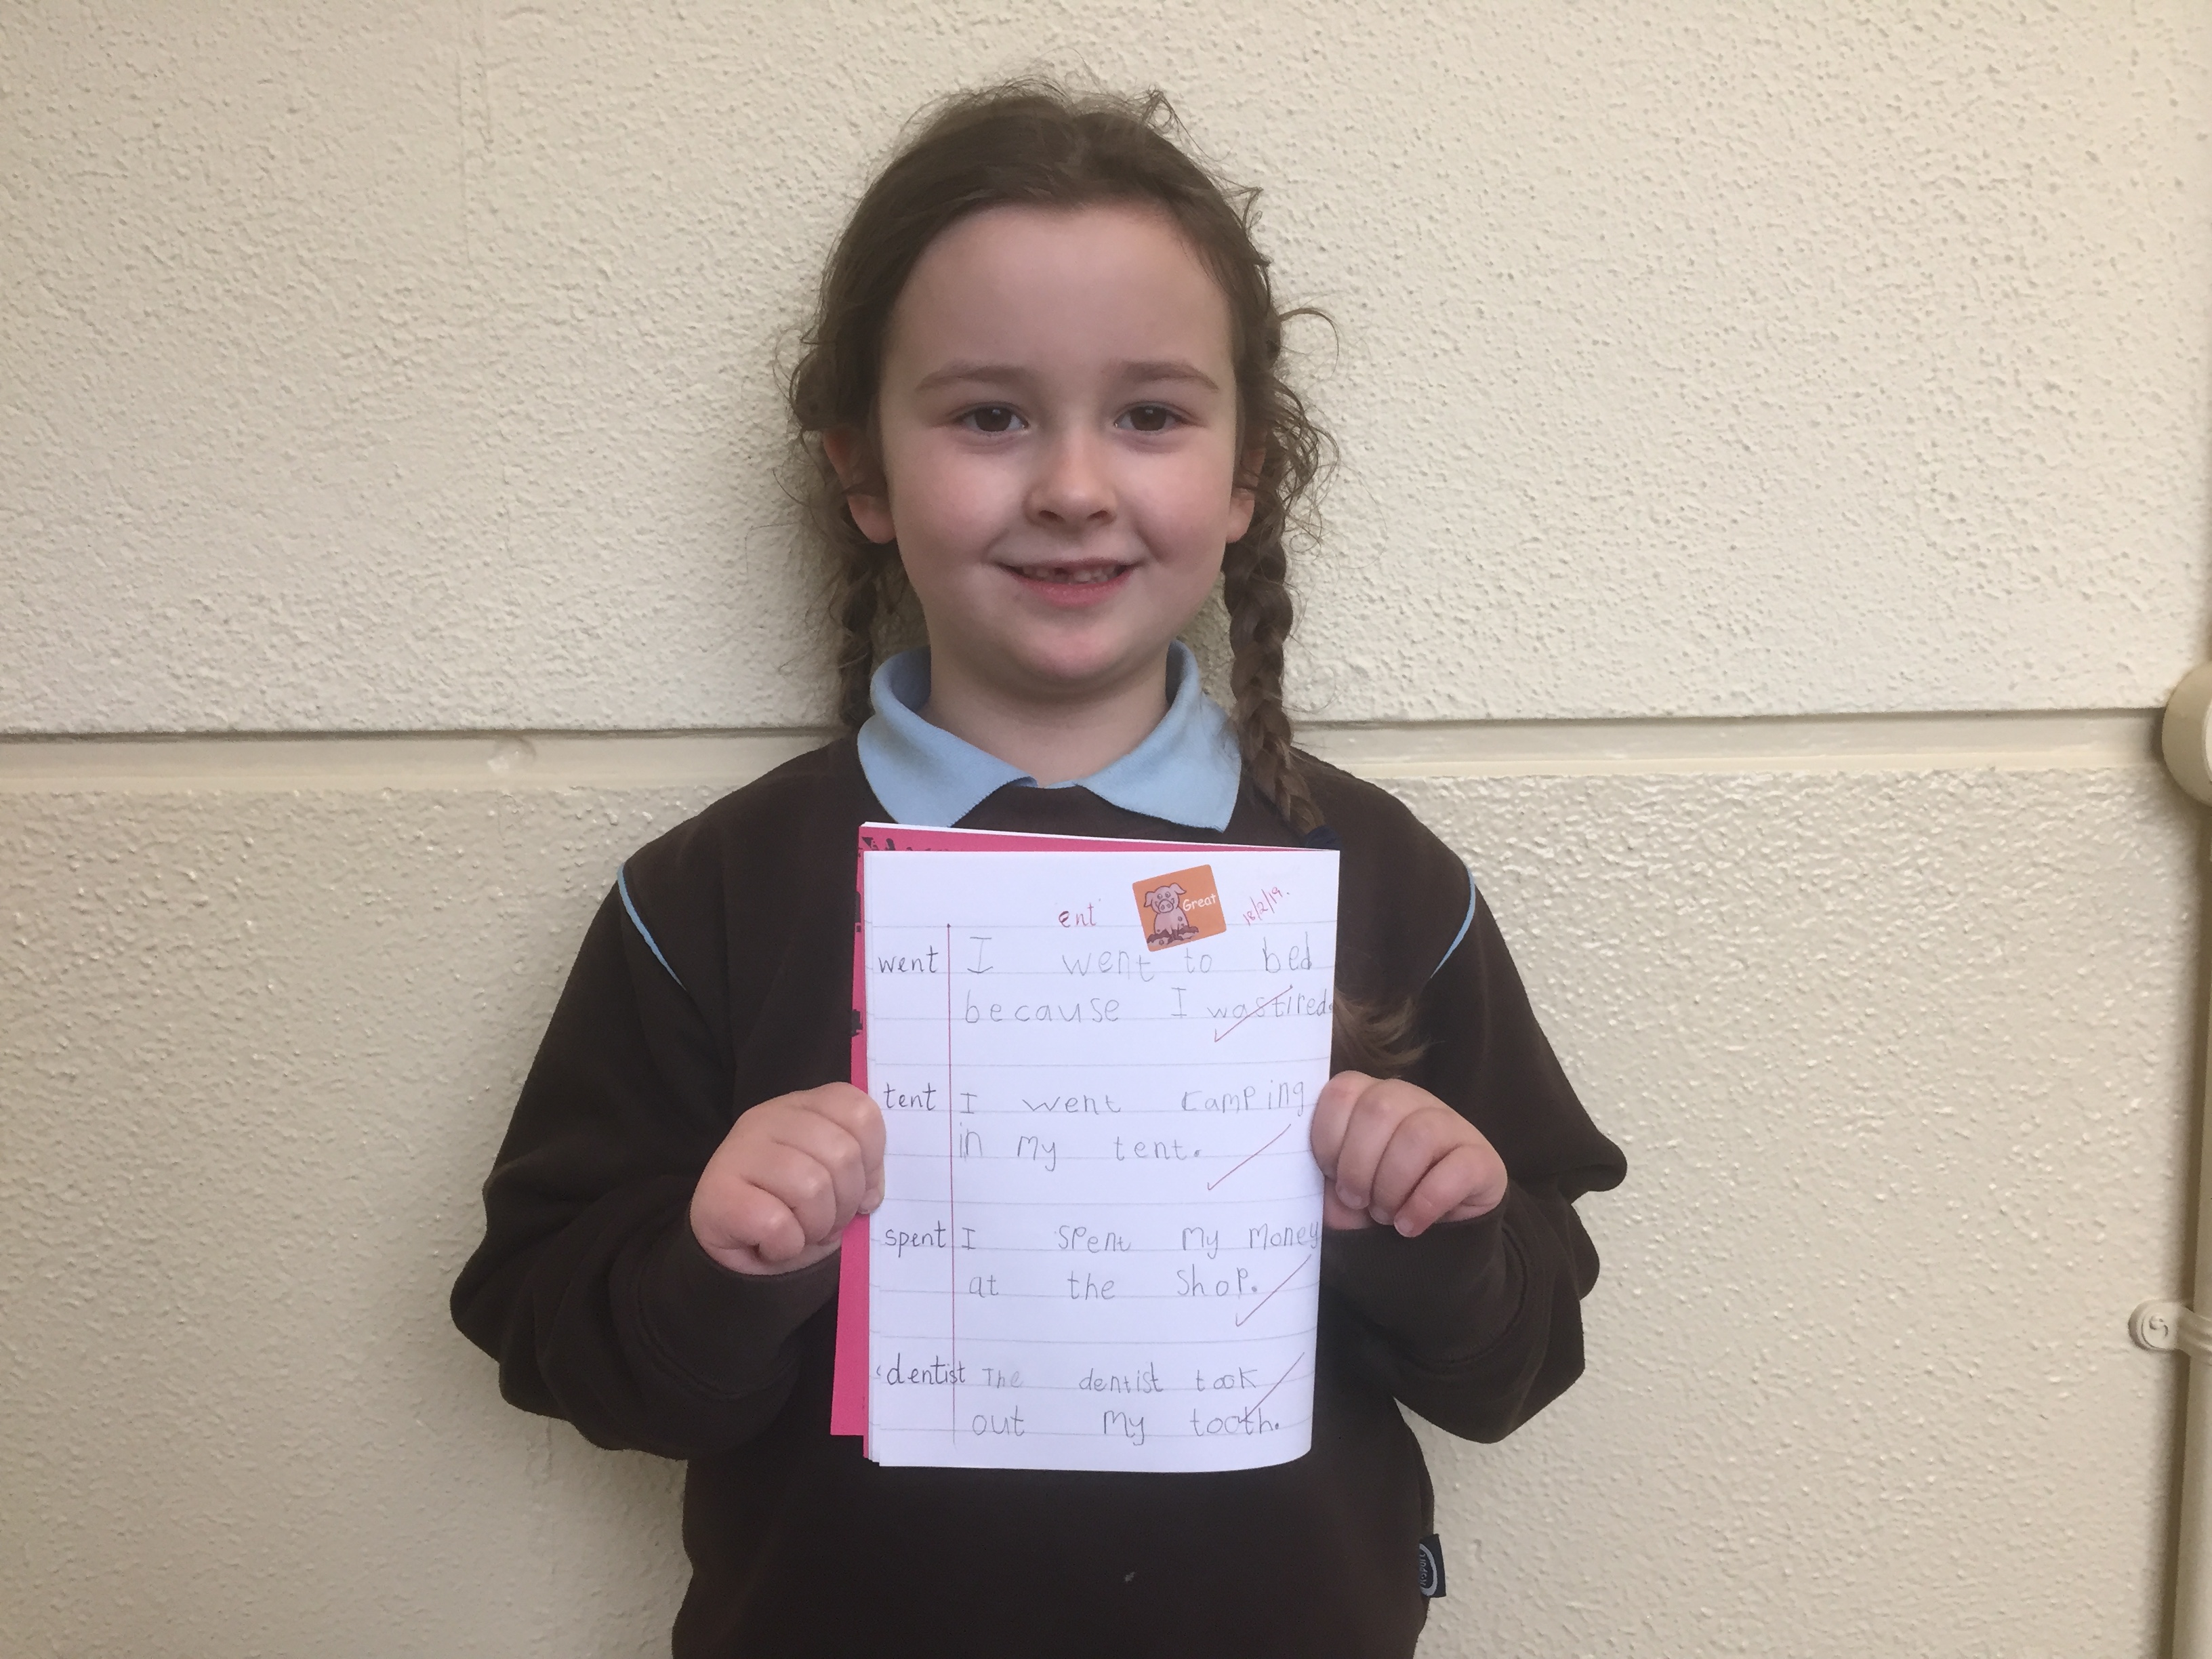 ent Great 18/2/19.
went I went to bed
because I was tired.
tent I went camping
in my tent.
spent I spent my money
at the shop.
dentist The dentist took
out my tooth.